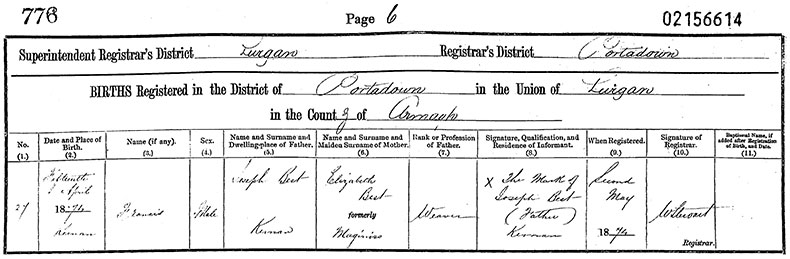 776 Page 6 02156614
Superintendent Registrar's District Lurgan Registrar's District Portadown
BIRTHS Registered in the District of Portadown in the Union of Lurgan
in the County of Armagh
No. (1.) Date and Place of Birth. (2.) Name (if any). (3.) Sex. (4.) Name and Surname and Dwelling-place of Father. (5.) Name and Surname and Maiden Surname of Mother. (6.) Rank or Profession of Father. (7.) Signature, Qualification, and Residence of Informant. (8.) When Registered. (9.) Signature of Registrar. (10.) Baptismal Name, if added after Registration of Birth, and Date. (11.)
27
Fifteenth
April
1874
Kernan
Francis
Male
Joseph Best
Kernan
Elizabeth
Best
formerly
Maginiss
Weaver
X The Mark of
Joseph Best
(Father)
Kernan
Second
May
1874
W Stewart
Registrar.